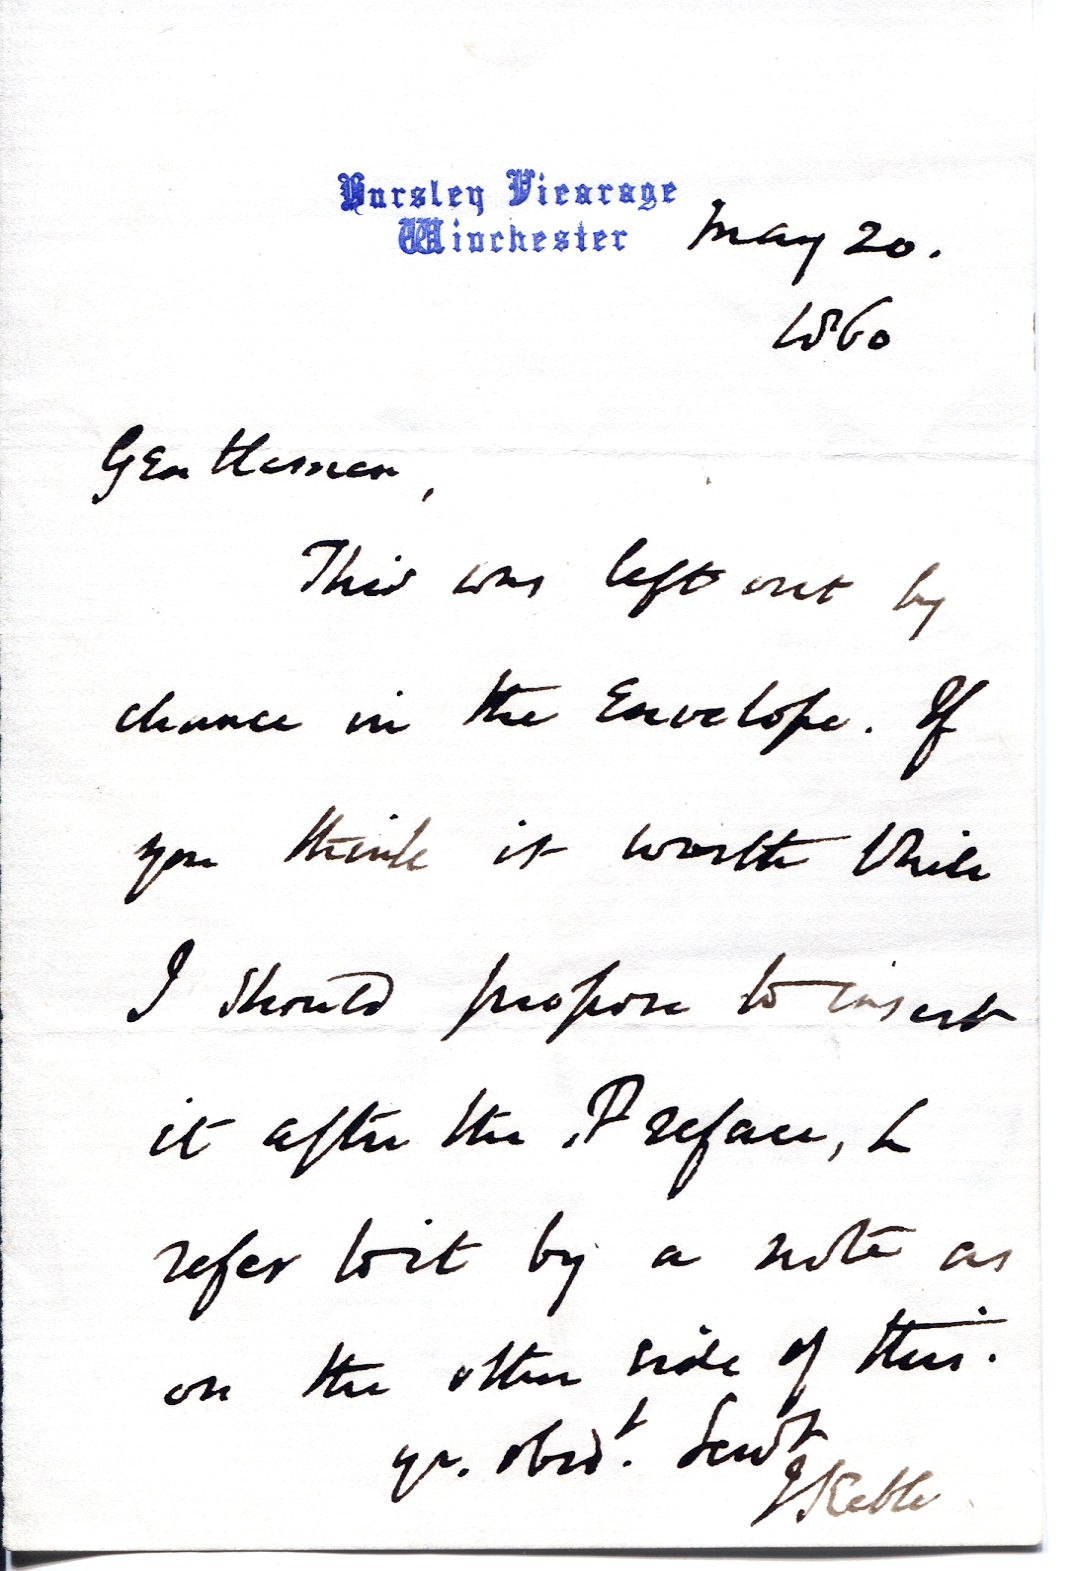 Hursley Vicarage
Winchester
May 20.
1860
Gentlemen,
This was left out by
chance in the Envelope. If
you think it worth while
I should propose to insert
it after the Preface, &
refer to it by a note as
on the other side of this.
yr. obedt. Servt
J Keble